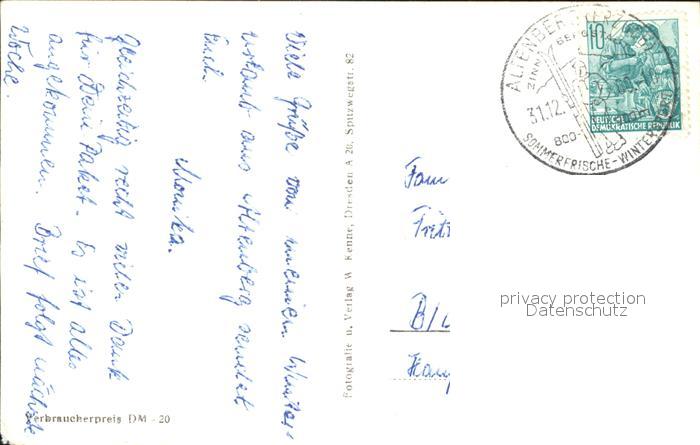 Viele Grüße von meinem Winter-
urlaub aus Altenberg sendet
Euch
Monika.
Gleichzeitig recht vielen Dank
für Dein Paket. Es ist alles
angekommen. Brief folgt nächste
Woche.
Verbraucherpreis DM -20
Fotografie u. Verlag W. Kenne, Dresden A 20, Spitzwegstr. 82
ALTENBERG
BERGSTADT
ZINN
31.12.
800
SOMMERFRISCHE-WINTERSPORT
10
DEUTSCHE
DEMOKRATISCHE REPUBLIK
Fam
Fritz
Bl
Ham
privacy protection
Datenschutz